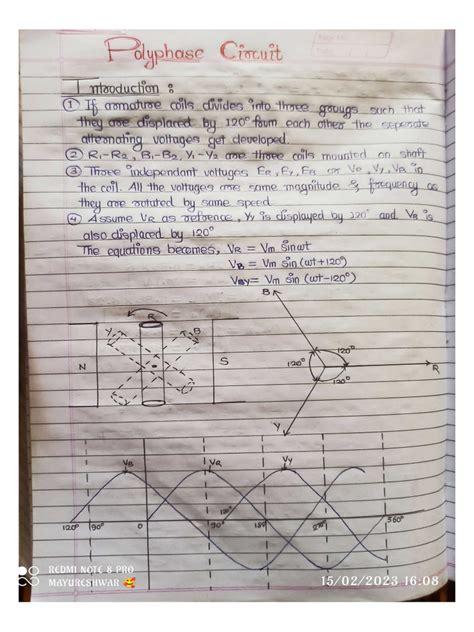 Polyphase Circuit
Introduction :
① If armature coils divides into three groups such that
they are displaced by 120° from each other the seperate
alternating voltages get developed.
② R₁-R₂, B₁-B₂, Y₁-Y₂ are three coils mounted on shaft
③ Three independent voltages ER, EY, EB or VR, VY, VB in
the coil. All the voltages are same magnitude & frequency as
they are rotated by same speed.
④ Assume VR as refrence, VY is displayed by 120° and VB is
also displaced by 120°
The equations becomes, VR = Vm sinωt
VB = Vm sin (ωt+120°)
VY = Vm sin (ωt-120°)
B
R
Y B
N S
120° 120° R
120°
Y
VB VR VY
120° 90° 0 90° 120° 180° 270° 360°
REDMI NOTE 8 PRO
MAYURESHWAR 🥰
15/02/2023 16:08